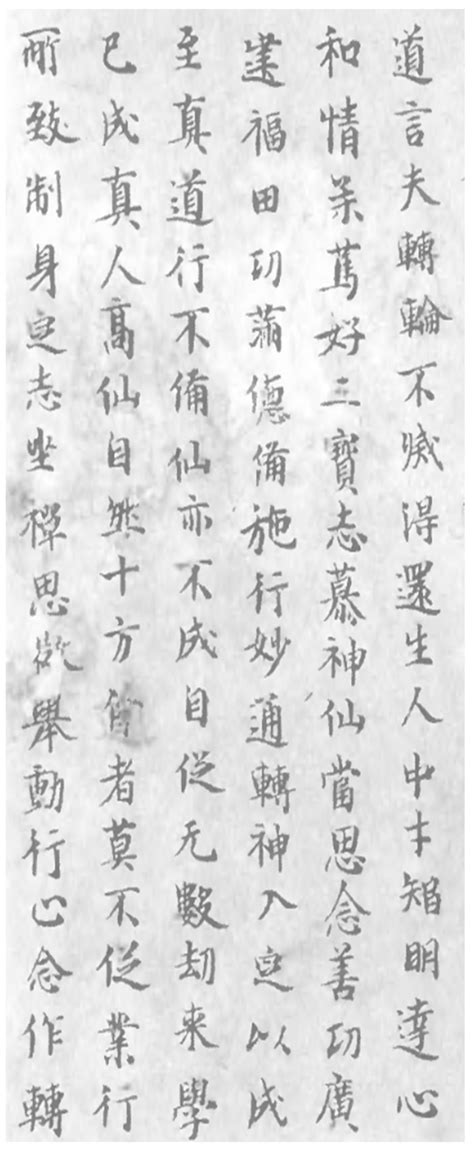 道言夫轉輪不滅得還生人中才智明達心
和情柔篤好三寶志慕神仙當思念善功廣
建福田功滿德備施行妙通轉神入定以成
至真道行不備仙亦不成自從无數劫來學
已成真人高仙自然十方者莫不從業行
所致制身定志坐禪思欲舉動行止念作轉